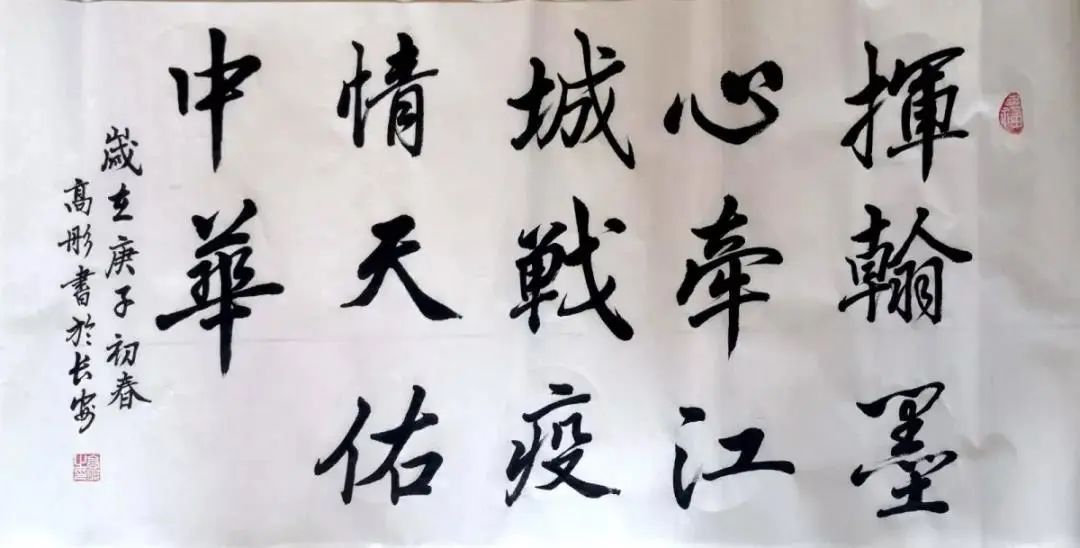 揮翰墨
心牽江
城戰疫
情天佑
中華
歲在庚子初春
高彤書於长安